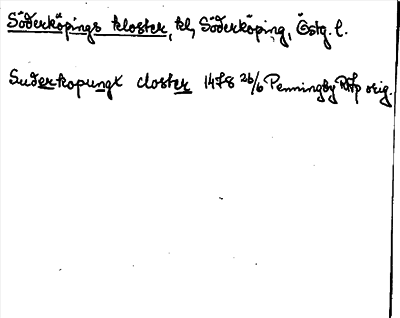 Söderköpings kloster, kl, Söderköping, Östg. l.
Suderkopungx closter 1478 26/6 Penningby RAp orig.